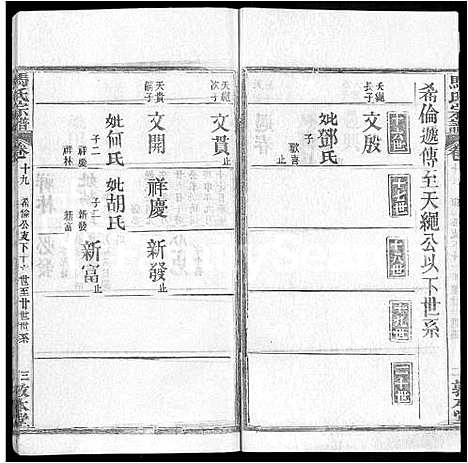 希倫遞傳至天繩公以下世系
十六世
十七世
十八世
十九世
二十世
天繩
長子
文殷
妣鄧氏
子一
歡喜
止
天繩
次子
文貫
止
天貴
嗣子
文開
妣何氏
子二
祥慶
祥林
祥慶
妣胡氏
子二
新發
新富
新發
止
新富
止
馬氏宗譜
卷十九
希倫公支下十六世至廿世世系
三
敦本堂
馬氏宗譜
敦本堂